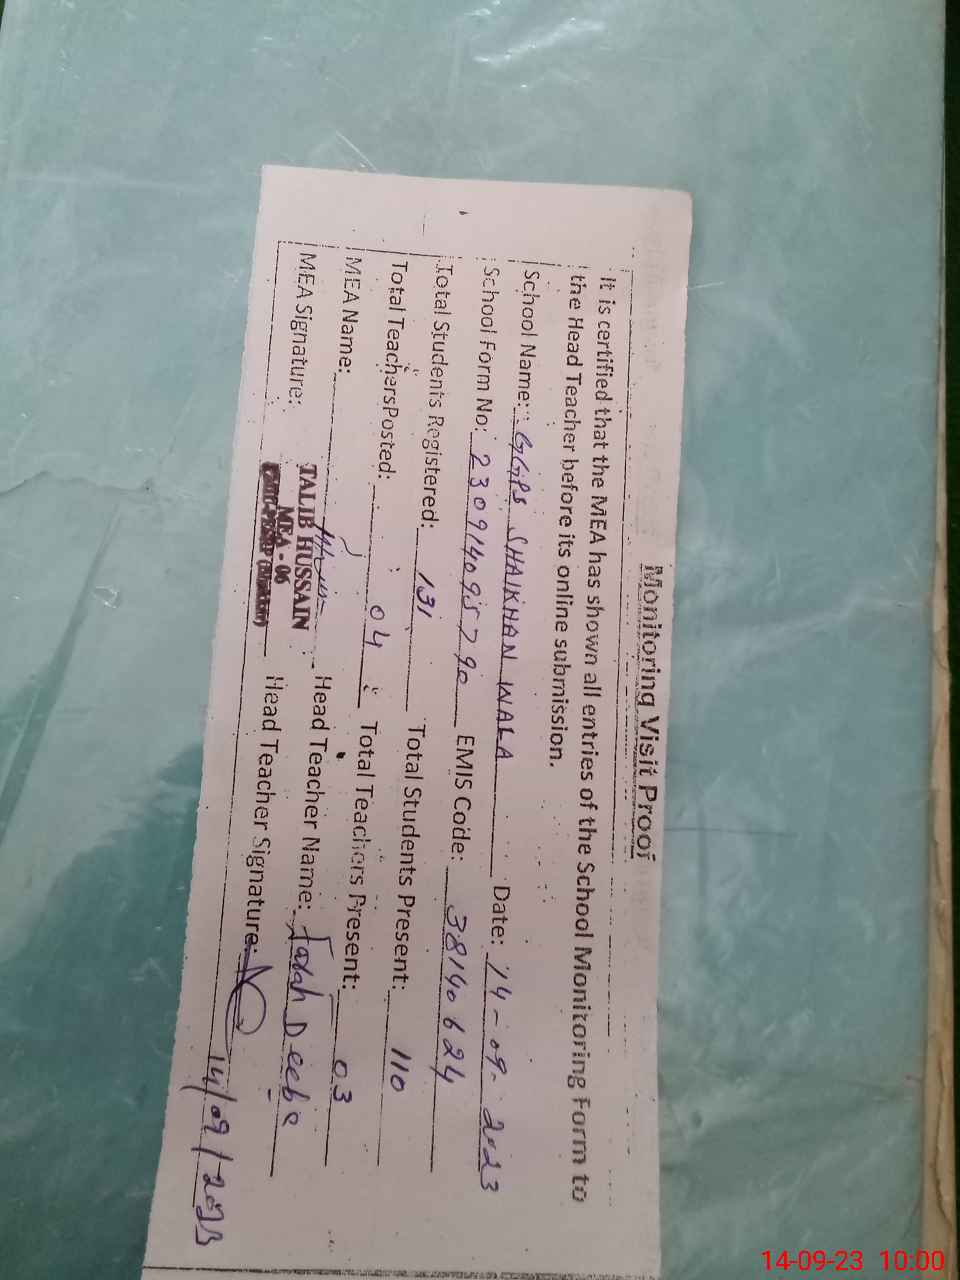 Monitoring Visit Proof
It is certified that the MEA has shown all entries of the School Monitoring Form to
the Head Teacher before its online submission.
School Name: GGPS SHAIKHAN WALA Date: 14-09-2023
School Form No: 23091409579o EMIS Code: 38140624
Total Students Registered: 131 Total Students Present: 110
Total Teachers Posted: 04 Total Teachers Present: 03
MEA Name: Head Teacher Name: Farah Deeba
TALIB HUSSAIN
MEA - 06
MEA Signature: Head Teacher Signature:
14/09/2023
14-09-23 10:00